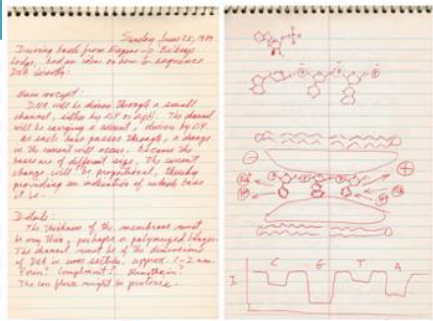 Sunday June 25, 1989
Driving back from Eugene to
had an idea on how to sequence
DNA directly:
Main concept:
DNA will be driven through a small
channel, either by ΔV or ΔpH. The channel
will be carrying a current, driven by ΔV.
As each base passes through, a change
in the current will occur. Because the
bases are of different size, the current
change will be proportional, thereby
providing an indication of which base
it is.
Details:
The thickness of the membrane must
be very thin, perhaps a polymerized
The channel must be of the dimensions
of DNA in cross section, approx. 1-2 nm.
Porin? Complement?
The ion flow might be protonic.
−
+
C G T A
I